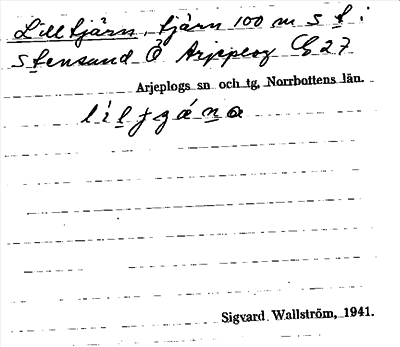 Lilltjärn, tjärn 100 m S t. i
Stensund Ö Arjeplog C 27
Arjeplogs sn och tg, Norrbottens län.
Sigvard Wallström, 1941.